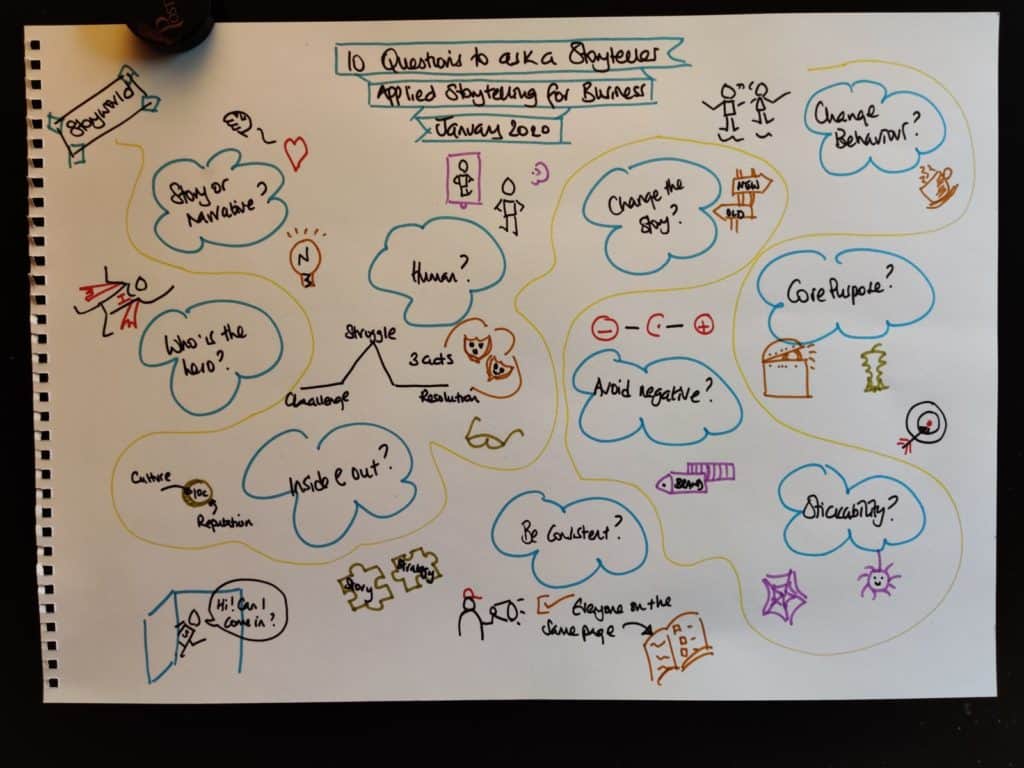 10 Questions to ask a Storyteller
Applied Storytelling for Business
January 2020
Storyworld
Story or
Narrative?
N
Who's the
hero?
Human?
Struggle
3 acts
Challenge
Resolution
Inside & out?
Culture
10c
Reputation
Story
Strategy
Hi! Can I
come in?
Be Consistent?
Everyone on the
Same page
Change the
Story?
NEW
OLD
Avoid negative?
Change
Behaviour?
Core Purpose?
Stickability?